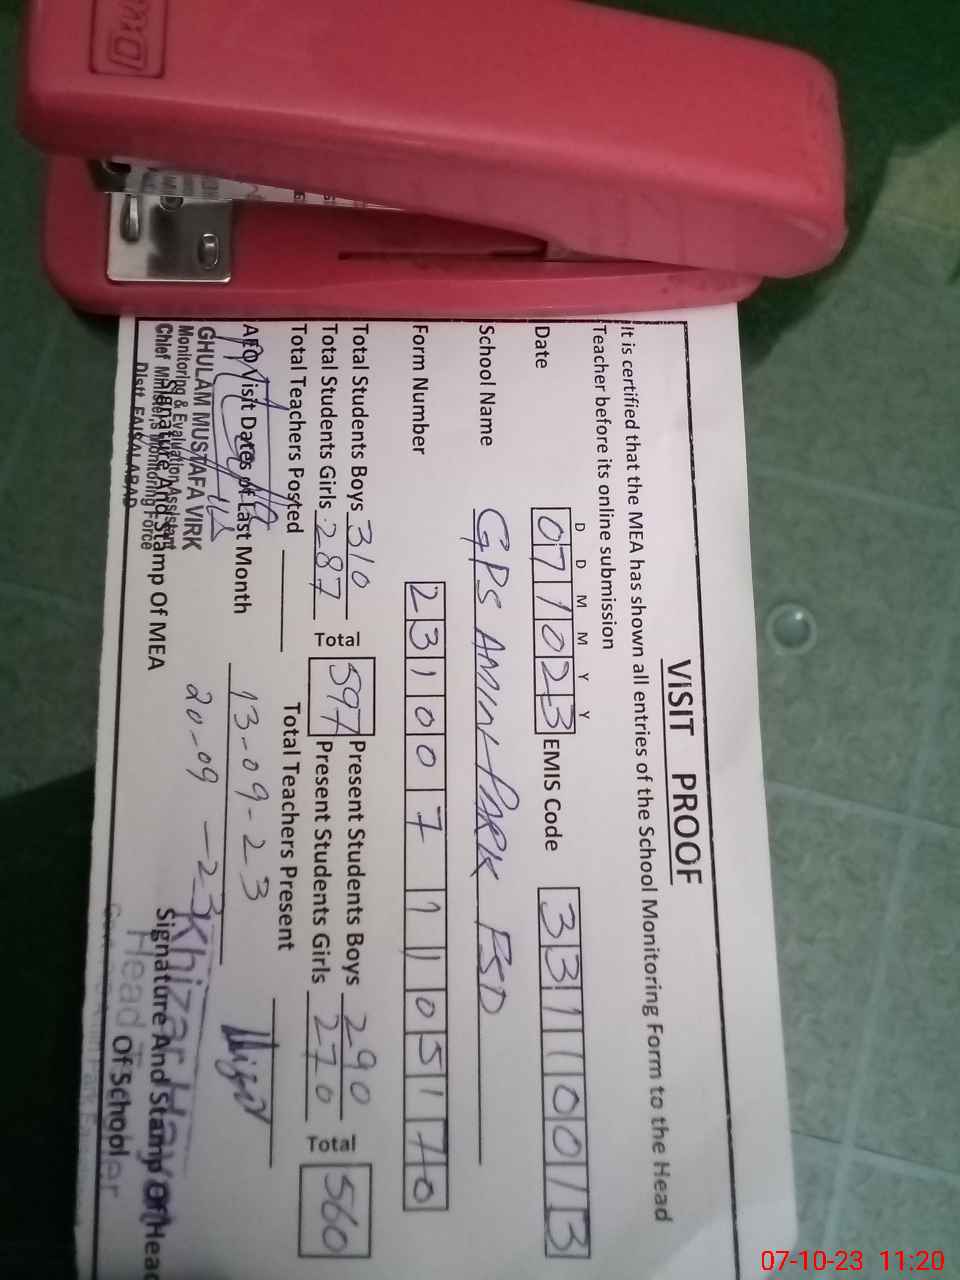 VISIT PROOF
It is certified that the MEA has shown all entries of the School Monitoring Form to the Head
Teacher before its online submission
D D M M Y Y
Date 071023 EMIS Code 33110013
School Name GPS AMIN PARK FSD
Form Number 2310071105170
Total Students Boys 310 Total 597 Present Students Boys 290 Total 560
Total Students Girls 287 Present Students Girls 270
Total Teachers Posted Total Teachers Present
AEO Visit Dates of Last Month 13-09-23
20-09-23
GHULAM MUSTAFA VIRK
Monitoring & Evaluation Assistant
Chief Minister's Monitoring Force
Distt. FAISALABAD
Signature And Stamp Of MEA
Khizar Hay
Signature And Stamp Of Head
Of School
Head
07-10-23 11:20